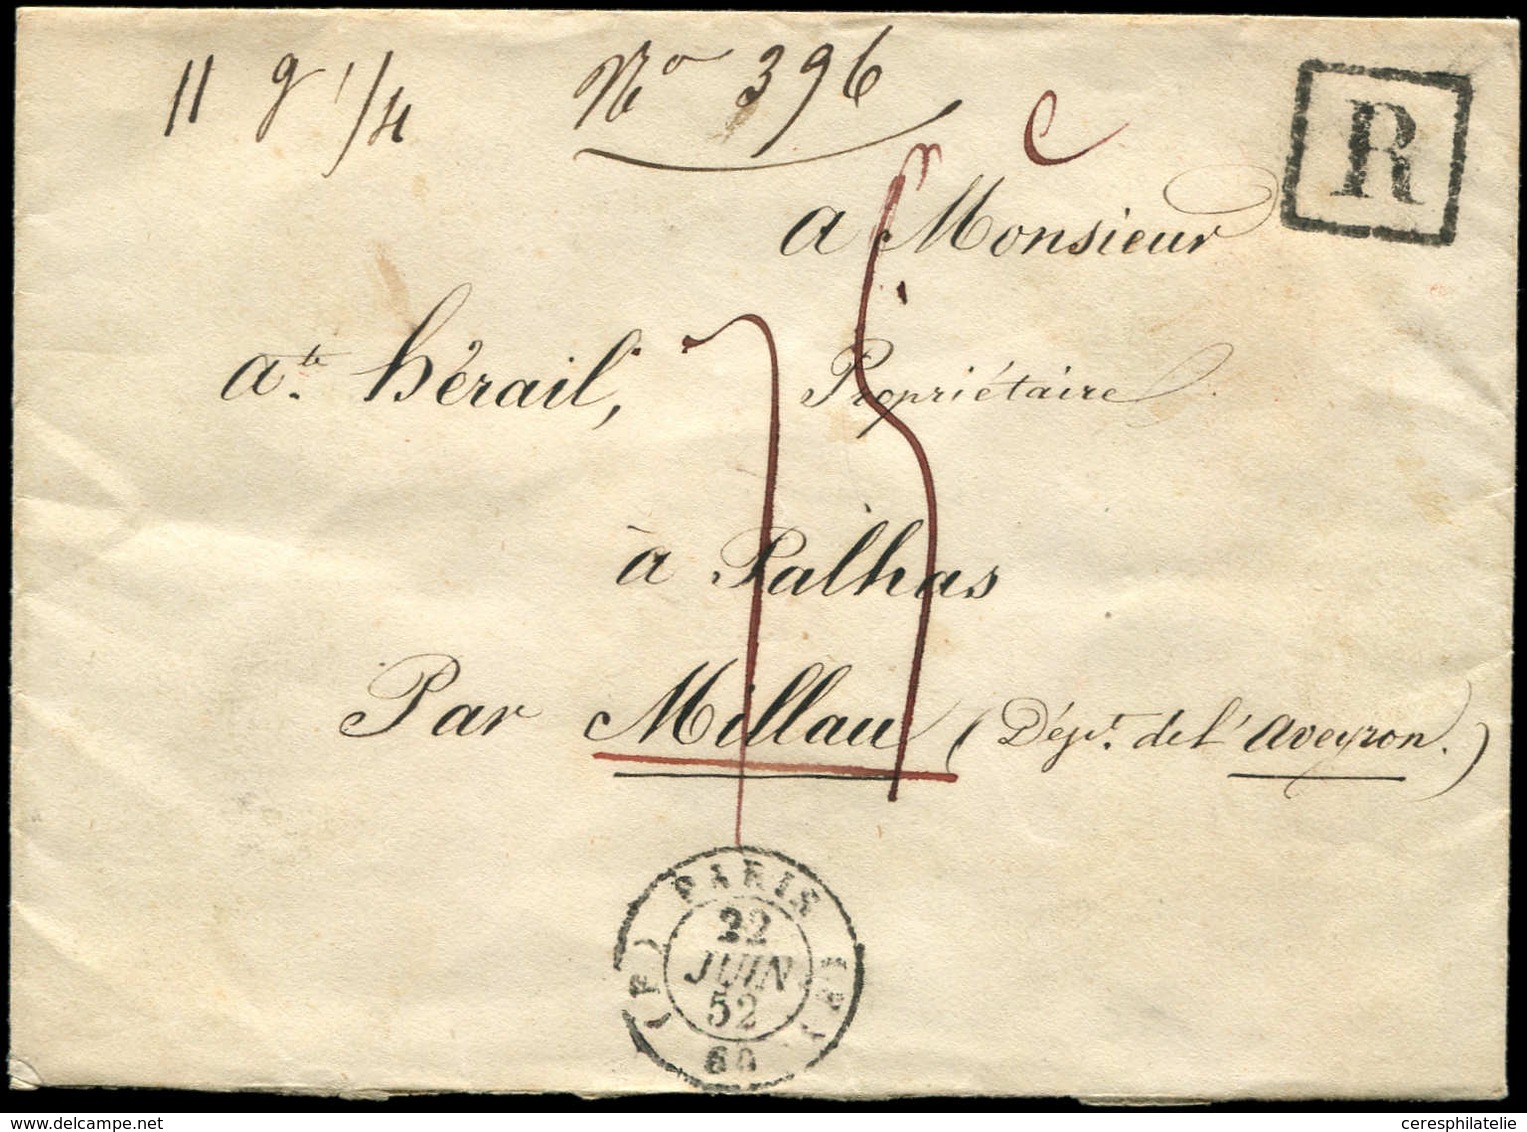 11 g 1/4 No 396
R
a Monsieur
ate hérail, Propriétaire
à Palhas
Par Millau (Dépt. de l'Aveyron.)
PARIS
22
JUIN
52
60
delcampe.net
ceresphilatelie